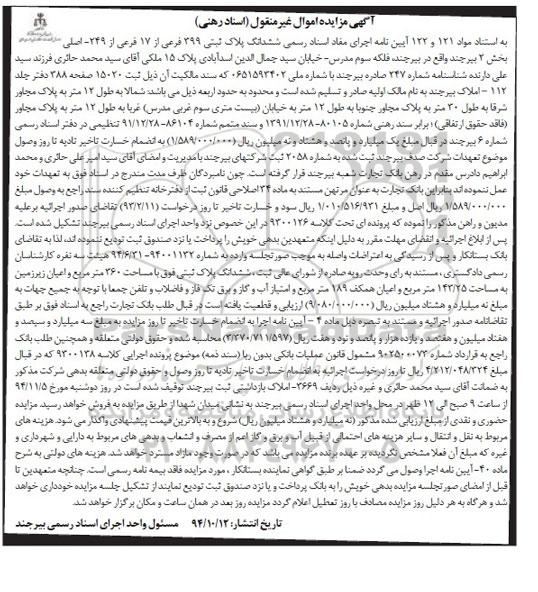 آگهی مزایده اموال غیرمنقول (اسناد رهنی)
به استناد مواد ۱۲۱ و ۱۲۲ آیین نامه اجرای مفاد اسناد رسمی ششدانگ پلاک ثبتی ۳۹۹ فرعی از ۱۷ فرعی از ۲۴۹- اصلی
بخش ۲ بیرجند واقع در بیرجند، فلکه سوم مدرس- خیابان سید جمال الدین اسدآبادی پلاک ۱۵ ملکی آقای سید محمد حائری فرزند سید
علی دارنده شناسنامه شماره ۲۴۷ صادره بیرجند با شماره ملی ۰۶۵۱۵۹۳۴۰۲ که سند مالکیت آن ذیل ثبت ۱۵۰۲۰ صفحه ۳۸۸ دفتر جلد
۱۱۲ - املاک بیرجند به نام مالک اولیه صادر و تسلیم شده است و محدود به حدود اربعه ذیل می باشد: شمالا به طول ۱۲ متر به پلاک مجاور
شرقا به طول ۳۰ متر به پلاک مجاور جنوبا به طول ۱۲ متر به خیابان (بیست متری سوم غربی مدرس) غربا به طول ۱۲ متر به پلاک مجاور
(فاقد حقوق ارتفاقی) ؛ برابر سند رهنی شماره ۸۰۱۰۵-۱۳۹۱/۱۲/۲۸ و سند متمم شماره ۸۶۱۰۴-۹۱/۱۲/۲۸ تنظیمی در دفتر اسناد رسمی
شماره ۶ بیرجند در قبال مبلغ یک میلیارد و پانصد و هشتاد و نه میلیون ریال (۱/۵۸۹/۰۰۰/۰۰۰) به انضمام خسارت تاخیر تادیه تا روز وصول
موضوع تعهدات شرکت صدف بیرجند ثبت شده به شماره ۲۰۵۸ ثبت شرکتهای بیرجند با مدیریت و امضای آقای سید امیر علی حائری و محمد
ابراهیم دادرس مقدم در رهن بانک تجارت شعبه بیرجند قرار گرفته است. چون نامبردگان ظرف مدت مندرج در اسناد فوق به تعهدات خود
عمل ننموده اند بنابراین بانک تجارت به عنوان مرتهن مستند به ماده ۳۴ اصلاحی قانون ثبت از دفترخانه تنظیم کننده سند راجع به وصول مبلغ
۱/۵۸۹/۰۰۰/۰۰۰ ریال اصل و مبلغ ۱/۰۱۰/۵۱۶/۹۳۱ ریال سود و خسارت تاخیر تا روز درخواست (۹۳/۲/۱۱) تقاضای صدور اجرائیه برعلیه
مدیون و راهن مذکور را نموده که پرونده ای تحت کلاسه ۹۳۰۰۱۲۶ در این خصوص نزد واحد اجرای اسناد رسمی بیرجند تشکیل شده است.
پس از ابلاغ اجرائیه و انقضای مهلت مقرر به دلیل اینکه متعهدین بدهی خویش را پرداخت یا نزد صندوق ثبت تودیع ننموده اند، لذا به تقاضای
بانک بستانکار و پس از رسیدگی به اعتراضات واصله به موجب صورتجلسه وارده به شماره ۹۴۰۰۱۱۳۲-۹۴/۶/۳۱ هیئت سه نفره کارشناسان
رسمی دادگستری، مستند به رای وحدت رویه صادره از شورای عالی ثبت، ششدانگ پلاک ثبتی فوق با مساحت ۳۶۰ متر مربع و اعیان زیرزمین
به مساحت ۱۴۳/۲۵ متر مربع و اعیان همکف ۱۸۹ متر مربع و امتیاز آب و گاز و برق تک فاز و فاضلاب و تلفن جمعا با توجه به جمیع جهات به
مبلغ نه میلیارد و هشتاد میلیون ریال (۹/۰۸۰/۰۰۰/۰۰۰) ارزیابی و قطعیت یافته است در قبال طلب بانک تجارت راجع به اسناد فوق بر طبق
تقاضانامه صدور اجرائیه و مستند به تبصره ذیل ماده ۴ - آیین نامه اجرا به انضمام خسارت تاخیر تا روز مزایده به مبلغ سه میلیارد و سیصد و
هفتاد میلیون و هفتصد و یازده هزار و پانصد و نود و هفت ریال (۳/۳۷۰/۷۱۱/۵۹۷) محاسبه شده و حقوق دولتی متعلقه و همچنین طلب بانک
راجع به قرارداد شماره ۹۰۲۵۰۰۰۷۳ مشمول قانون عملیات بانکی بدون ربا (سند ذمه) موضوع پرونده اجرایی کلاسه ۹۳۰۰۱۲۸ که در قبال
مبلغ ۴/۷۱۲/۰۴۸/۳۲۴ ریال تا روز درخواست اجرائیه به انضمام خسارت تاخیر تادیه تا روز وصول و حقوق دولتی متعلقه بدهی شرکت مذکور
به ضمانت آقای سید محمد حائری و غیره ذیل ردیف ۳۶۶۹- املاک بازداشتی ثبت بیرجند توقیف شده است در روز دوشنبه مورخ ۹۴/۱۱/۵
از ساعت ۹ صبح الی ۱۲ ظهر در محل واحد اجرای اسناد رسمی بیرجند به نشانی میدان شهدا از طریق مزایده به فروش خواهد رسید. مزایده
حضوری و نقدی از مبلغ ارزیابی شده مذکور (نه میلیارد و هشتاد میلیون ریال) شروع و به بالاترین قیمت پیشنهادی واگذار می شود. هزینه های
مربوط به نقل و انتقال و سایر هزینه های احتمالی از قبیل آب و برق و گاز اعم از مصرف و انشعاب و بدهی های مربوط به دارایی و شهرداری و
غیره که مبلغ آن فعلا مشخص نگردیده بر عهده برنده مزایده می باشد که در صورت وجود مازاد مسترد خواهد شد. هزینه های دولتی به شرح
ماده ۴۰- آیین نامه اجرا وصول می گردد ضمنا بر طبق گواهی نماینده بستانکار، مورد مزایده فاقد بیمه نامه رسمی است. چنانچه متعهدین تا
قبل از امضای صورتجلسه مزایده بدهی خویش را به بانک پرداخت و یا نزد صندوق ثبت تودیع نمایند از تشکیل جلسه مزایده خودداری خواهد
شد و هرگاه به هر دلیل روز مزایده مصادف با روز تعطیل اعلام گردد مزایده روز بعد در همان ساعت و مکان برگزار خواهد شد.
تاریخ انتشار: ۹۴/۱۰/۱۲ مسئول واحد اجرای اسناد رسمی بیرجند